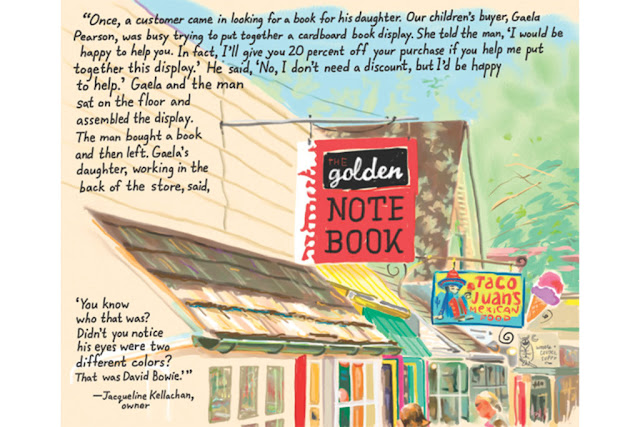 “Once, a customer came in looking for a book for his daughter. Our children's buyer, Gaela
Pearson, was busy trying to put together a cardboard book display. She told the man, ‘I would be
happy to help you. In fact, I'll give you 20 percent off your purchase if you help me put
together this display.’ He said, ‘No, I don't need a discount, but I'd be happy
to help.’ Gaela and the man
sat on the floor and
assembled the display.
The man bought a book
and then left. Gaela's
daughter, working in the
back of the store, said,
‘You know
who that was?
Didn't you notice
his eyes were two
different colors?
That was David Bowie.’”
—Jacqueline Kellachan,
owner
THE
golden
NOTE
BOOK
TACO
JUAN'S
MEXICAN
FOOD